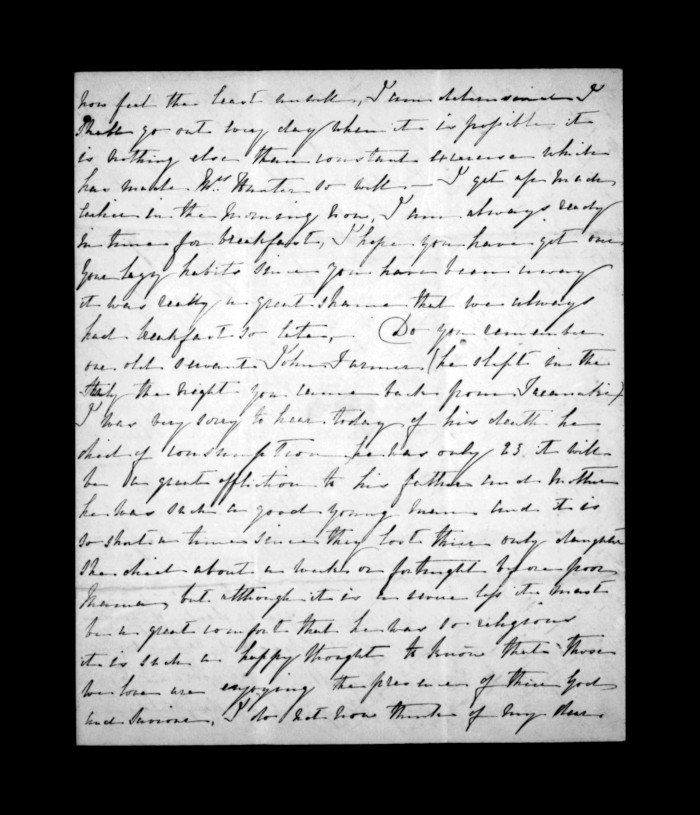 now feel the least unwell, I am determined I
shall go out every day when it is possible it
is nothing else than constant exercise which
has made Mrs Hunter so well — I get up much
earlier in the morning now, I am always ready
in time for breakfast, I hope you have got over
your lazy habits since you have been away
it was really a great shame that we always
had breakfast so late, — Do you remember
our old servant John Farmer (he slept in the
study the night you came back from
I was very sorry to hear today of his death he
died of consumption he was only 23, it will
be a great affliction to his father and mother
he was such a good young man and it is
so short a time since they lost their only daughter
she died about a week or fortnight before poor
Mama, but although it is a severe loss it must
be a great comfort that he was so religious
it is such a happy thought to know that those
we love are enjoying the presence of their God
and Saviour, I do not now think of my dear